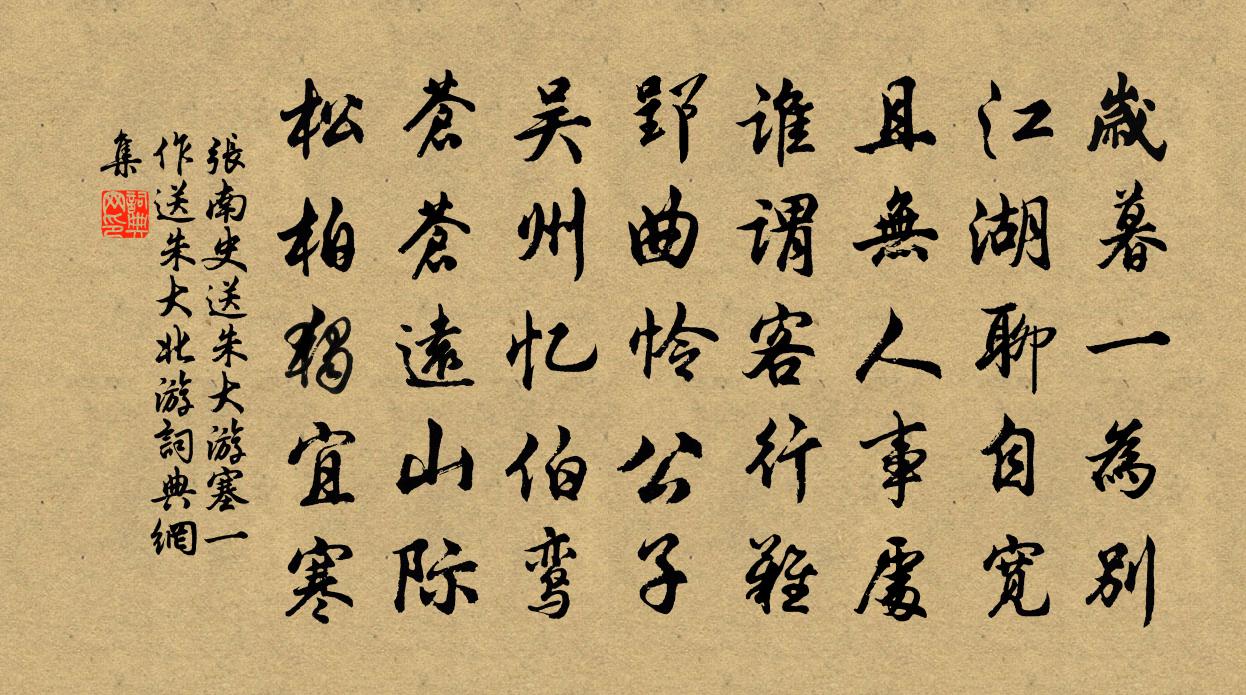 歲暮一為別
江湖聊自寬
且無人事處
誰謂客行難
郢曲怜公子
吴州忆伯鸾
蒼蒼遠山际
松柏獨宜寒
張南史送朱大游塞一
作送朱大北游詞典網
集
詞典網印